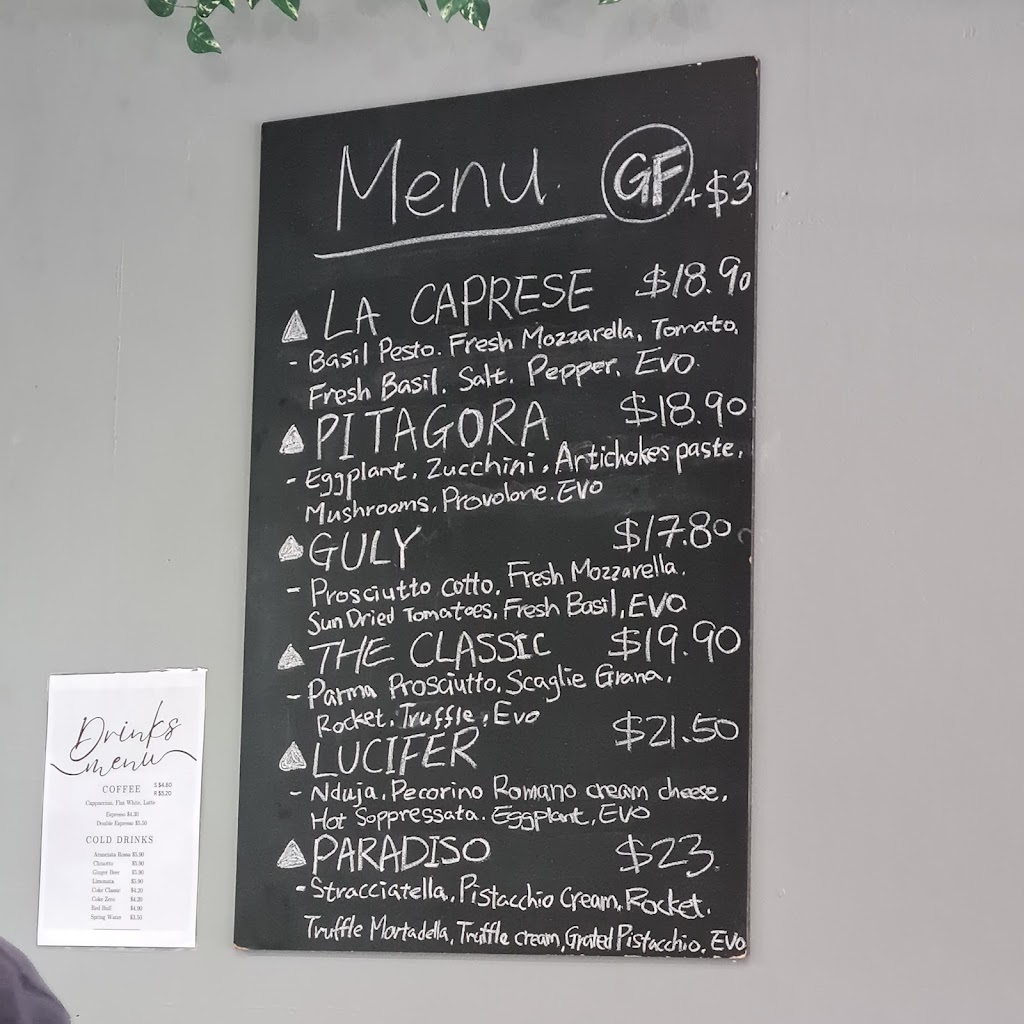 Menu. GF +$3
LA CAPRESE $18.90
- Basil Pesto. Fresh Mozzarella, Tomato,
Fresh Basil, Salt. Pepper. Evo.
PITAGORA $18.90
- Eggplant, Zucchini, Artichokes paste,
Mushrooms, Provolone. Evo
GULY $17.80
- Prosciutto cotto, Fresh Mozzarella.
Sun Dried Tomatoes, Fresh Basil, EVO
THE CLASSIC $19.90
- Parma Prosciutto, Scaglie Grana,
Rocket, Truffle, Evo
LUCIFER $21.50
- Nduja, Pecorino Romano cream cheese,
Hot Soppressata. Eggplant, EVO
PARADISO $23
- Stracciatella, Pistacchio Cream, Rocket.
Truffle Mortadella, Truffle cream, Grated Pistacchio, EVO
Drinks
menu
COFFEE S $4.60
R $5.20
Cappuccino, Flat White, Latte
Espresso $4.30
Double Espresso $5.50
COLD DRINKS
Aranciata Rossa $5.90
Chinotto $5.90
Ginger Beer $5.90
Limonata $5.90
Coke Classic $4.20
Coke Zero $4.20
Red Bull $4.90
Spring Water $3.50